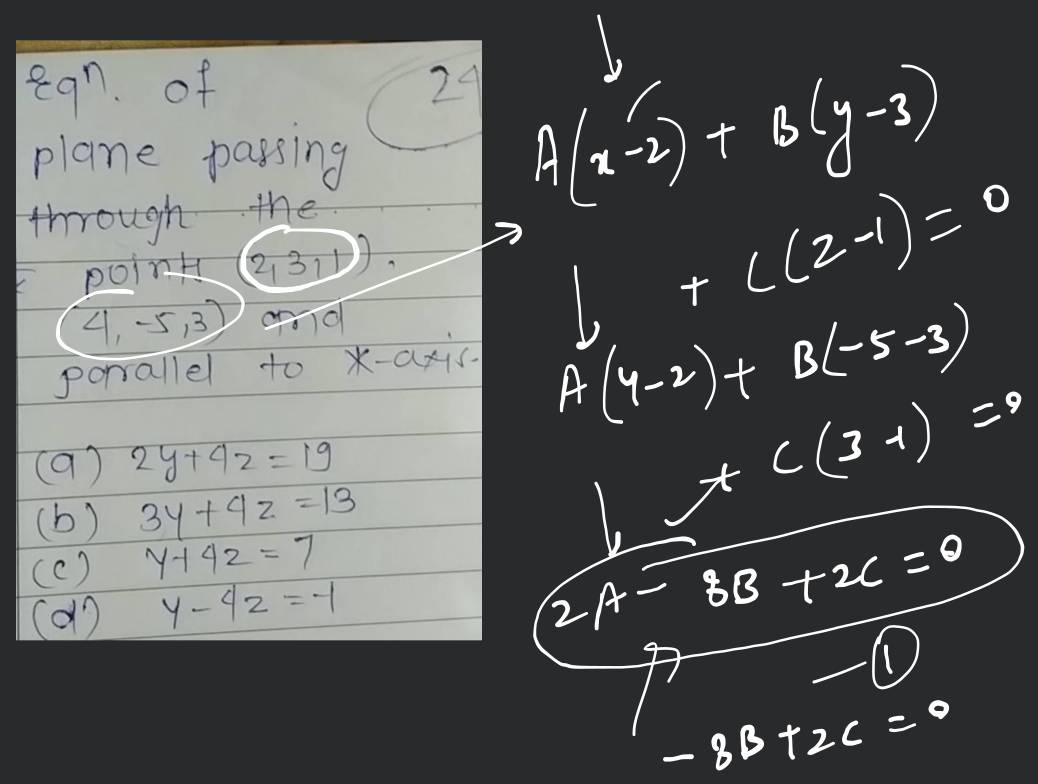 Eqn. of
plane passing
through the
point (2,3,1).
4, -5,3) and
parallel to x-axis.
(a) 2y+4z=19
(b) 3y+4z=13
(c) y+4z=7
(d) y-4z=-1
24
A(x-2) + B(y-3)
+ C(z-1)=0
A(4-2)+ B(-5-3)
+ C(3-1) =0
2A- 8B +2C=0
-①
-8B+2C=0